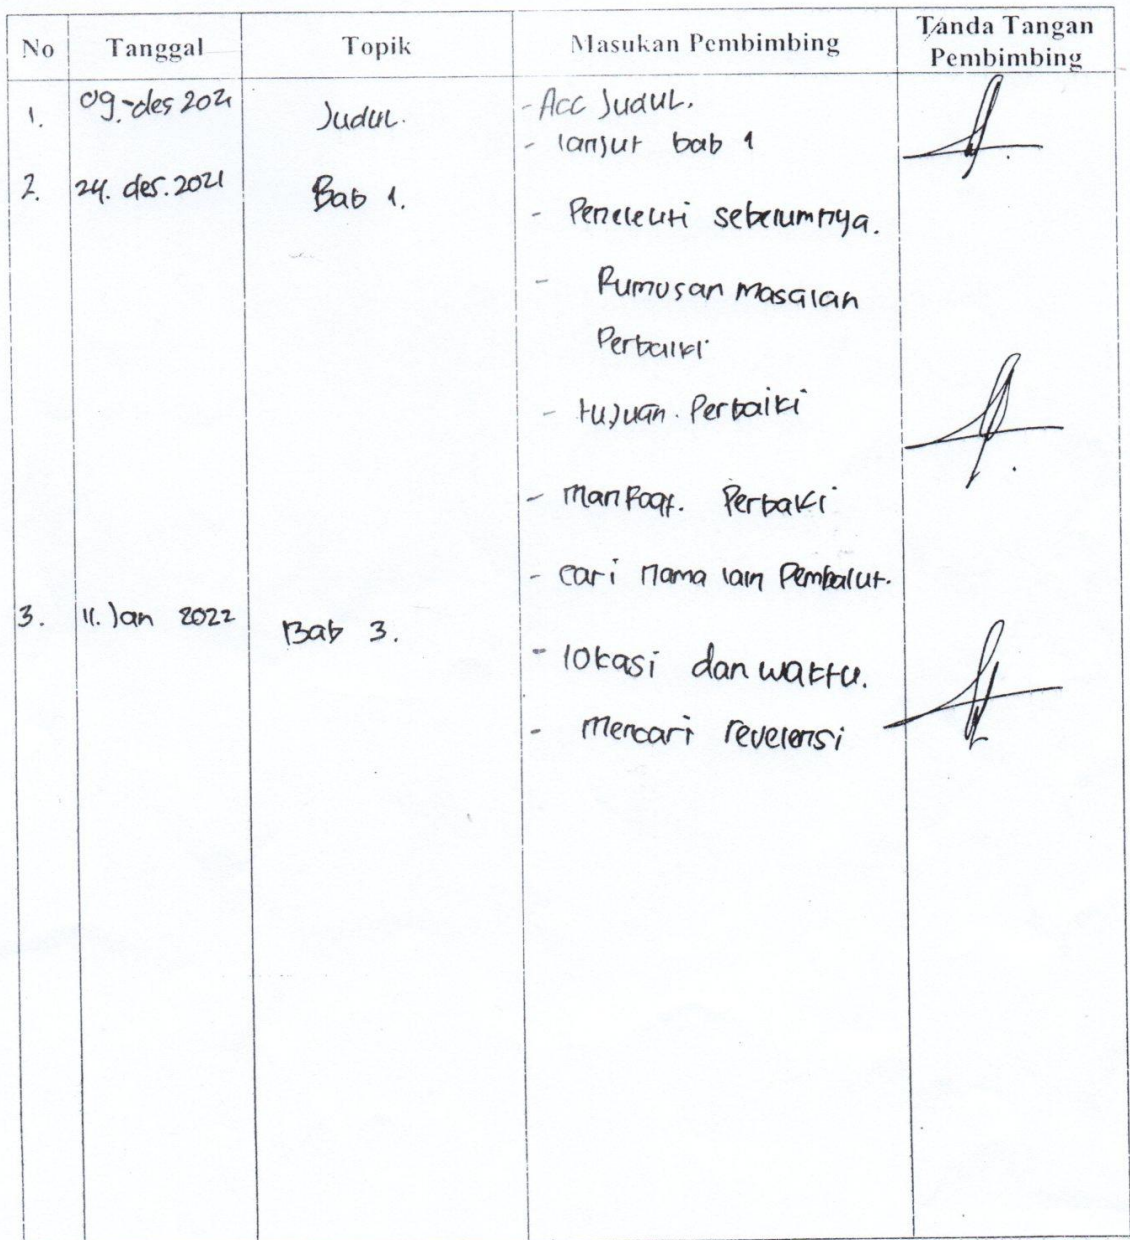 No Tanggal Topik Masukan Pembimbing Tanda Tangan
Pembimbing
1. 09-des 2021 Judul. - Acc Judul.
- lanjut bab 1
2. 24. des. 2021 Bab 1. - Peneleliti sebelumnya.
- Rumusan Masalah
Perbaiki
- tujuan. Perbaiki
- Manfaat. Perbaki
- cari nama lain Pembalut.
3. 11. Jan 2022 Bab 3. - lokasi dan waktu.
- Mencari reverensi